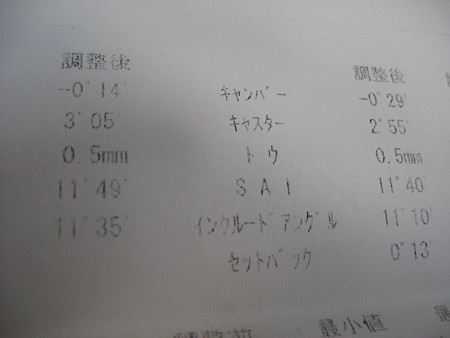 調整後 調整後
-0°14' キャンバー -0°29'
3°05' キャスター 2°55'
0.5mm トウ 0.5mm
11°49' SAI 11°40'
11°35' インクルードアンゲル 11°10'
セットバック 0°13'
調整前 最小値